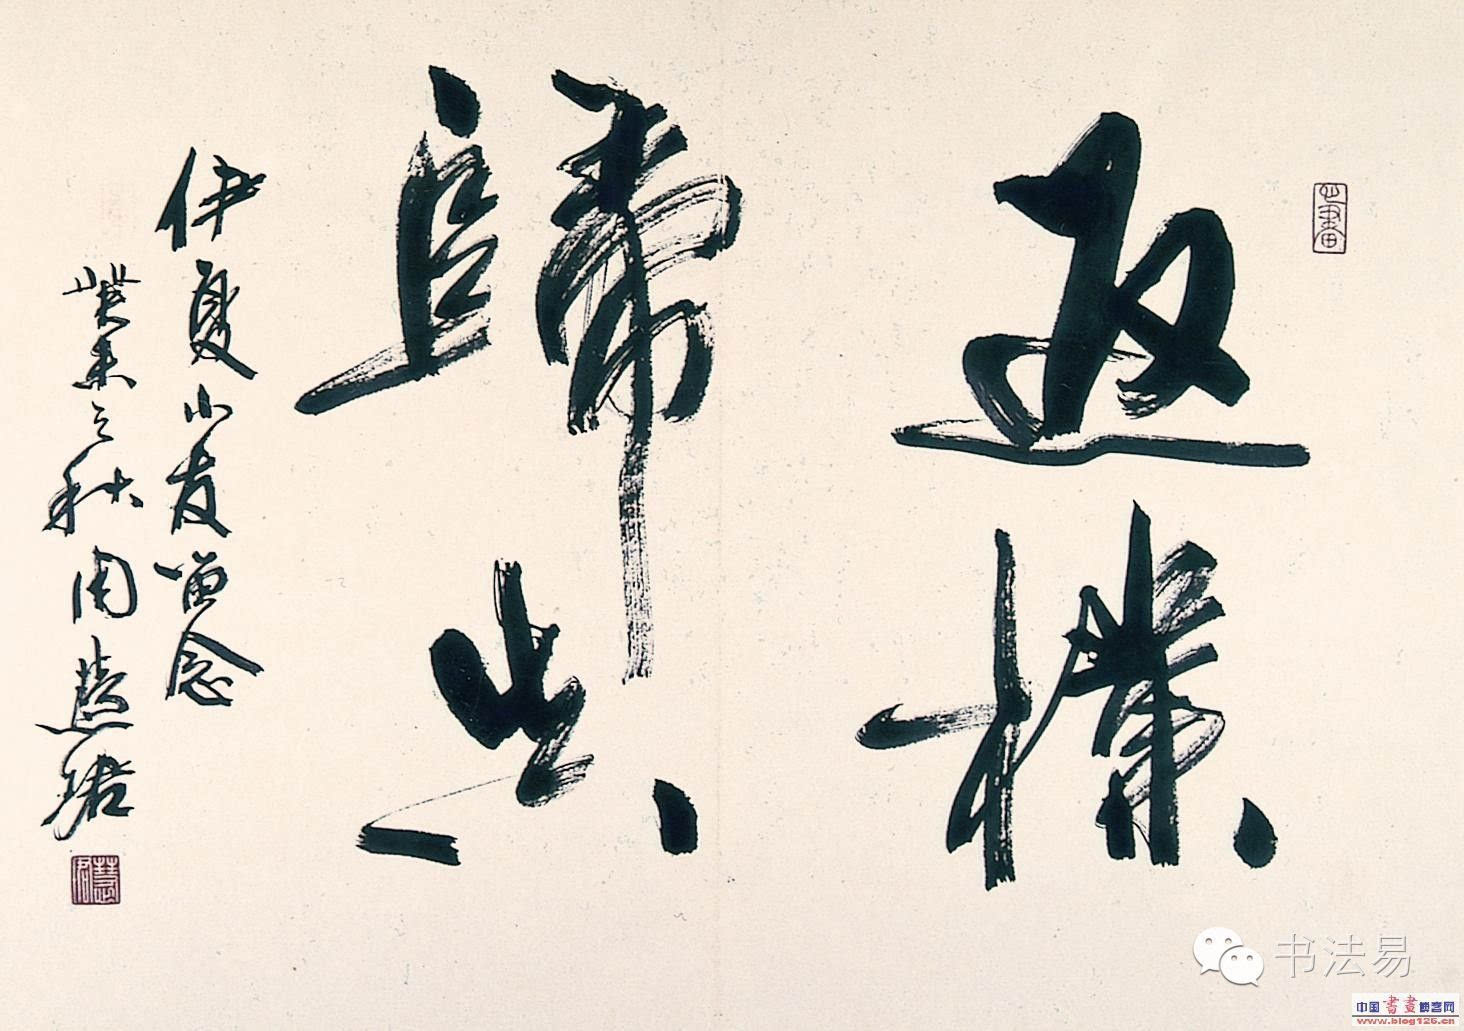 返樸
歸真
伊夏小友留念
癸未之秋周慧珺
慧珺
书法易
中国書畫博客网
www.blog126.cn